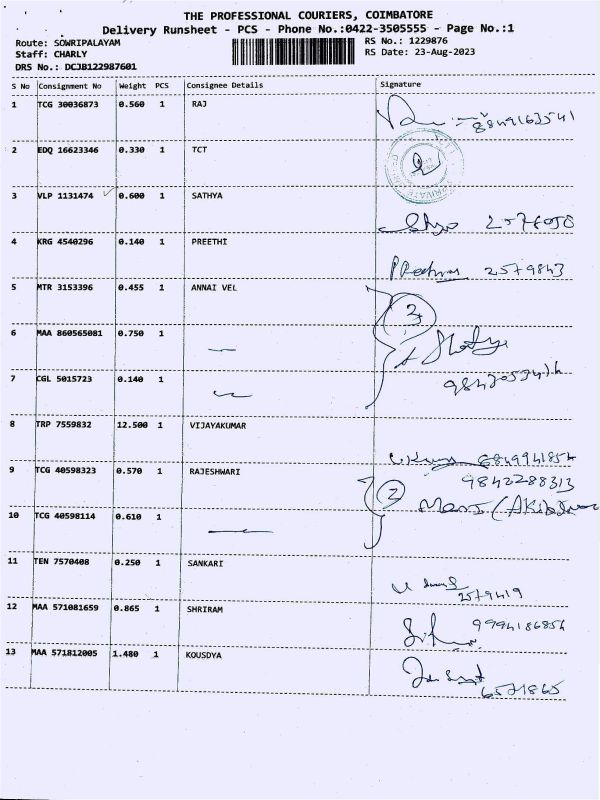 THE PROFESSIONAL COURIERS, COIMBATORE
Delivery Runsheet - PCS - Phone No.:0422-3505555 - Page No.:1
Route: SOWRIPALAYAM RS No.: 1229876
Staff: CHARLY RS Date: 23-Aug-2023
DRS No.: DCJB122987601
S No Consignment No Weight PCS Consignee Details Signature
1 TCG 30036873 0.560 1 RAJ
8849163541
2 EDQ 16623346 0.330 1 TCT
3 VLP 1131474 0.600 1 SATHYA
2576050
4 KRG 4540296 0.140 1 PREETHI
2579843
5 MTR 3153396 0.455 1 ANNAI VEL
6 MAA 860565081 0.750 1
7 CGL 5015723 0.140 1
8 TRP 7559832 12.500 1 VIJAYAKUMAR
8849941854
9 TCG 40598323 0.570 1 RAJESHWARI
9842288313
2
10 TCG 40598114 0.610 1
11 TEN 7570408 0.250 1 SANKARI
2579419
12 MAA 571081659 0.865 1 SHRIRAM
9994186854
13 MAA 571812005 1.480 1 KOUSDYA
6571865